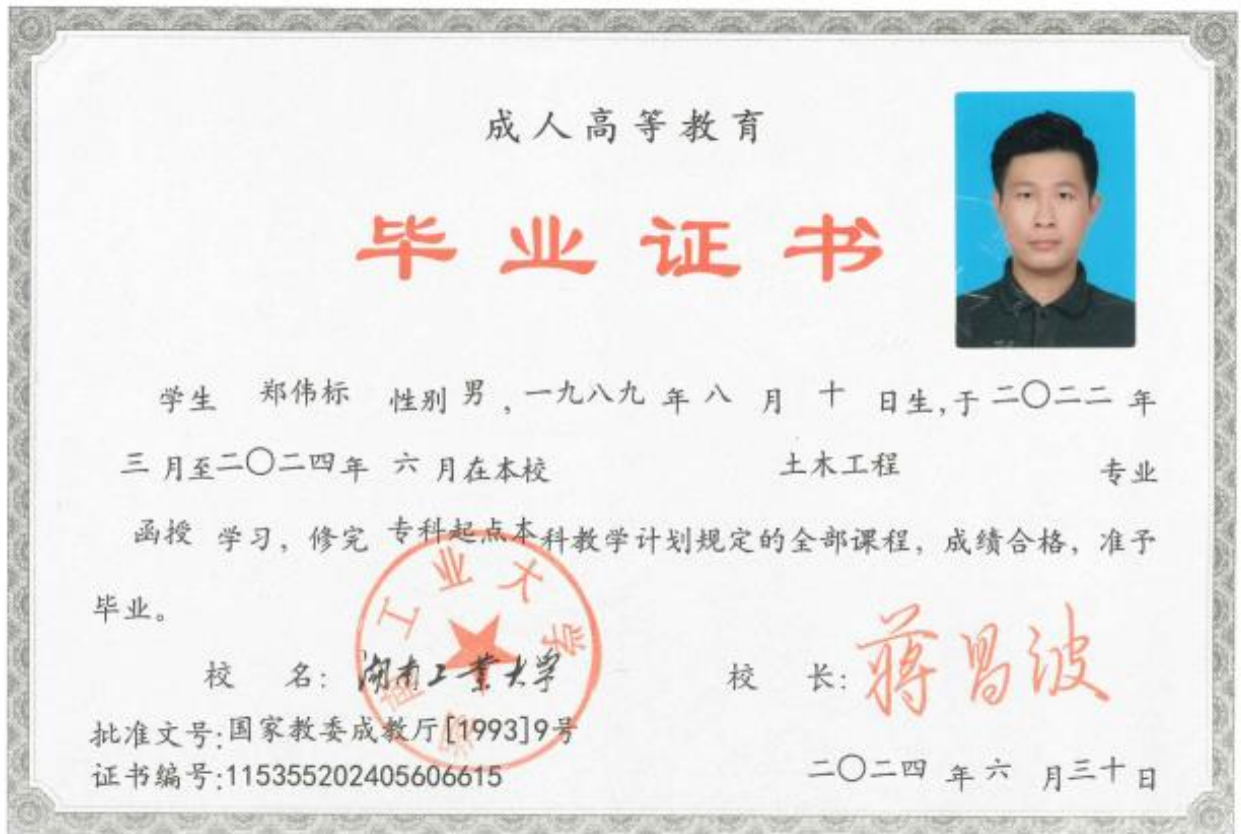 成人高等教育
毕业证书
学生 郑伟标 性别 男，一九八九 年 八 月 十 日生，于 二〇二二 年
三 月至二〇二四年 六 月在本校 土木工程 专业
函授 学习，修完 专科起点本科教学计划规定的全部课程，成绩合格，准予
毕业。
湖南工业大学
校 名：湖南工业大学 校 长：蒋昌波
批准文号:国家教委成教厅[1993]9号
证书编号:115355202405606615
二〇二四 年 六 月三十日